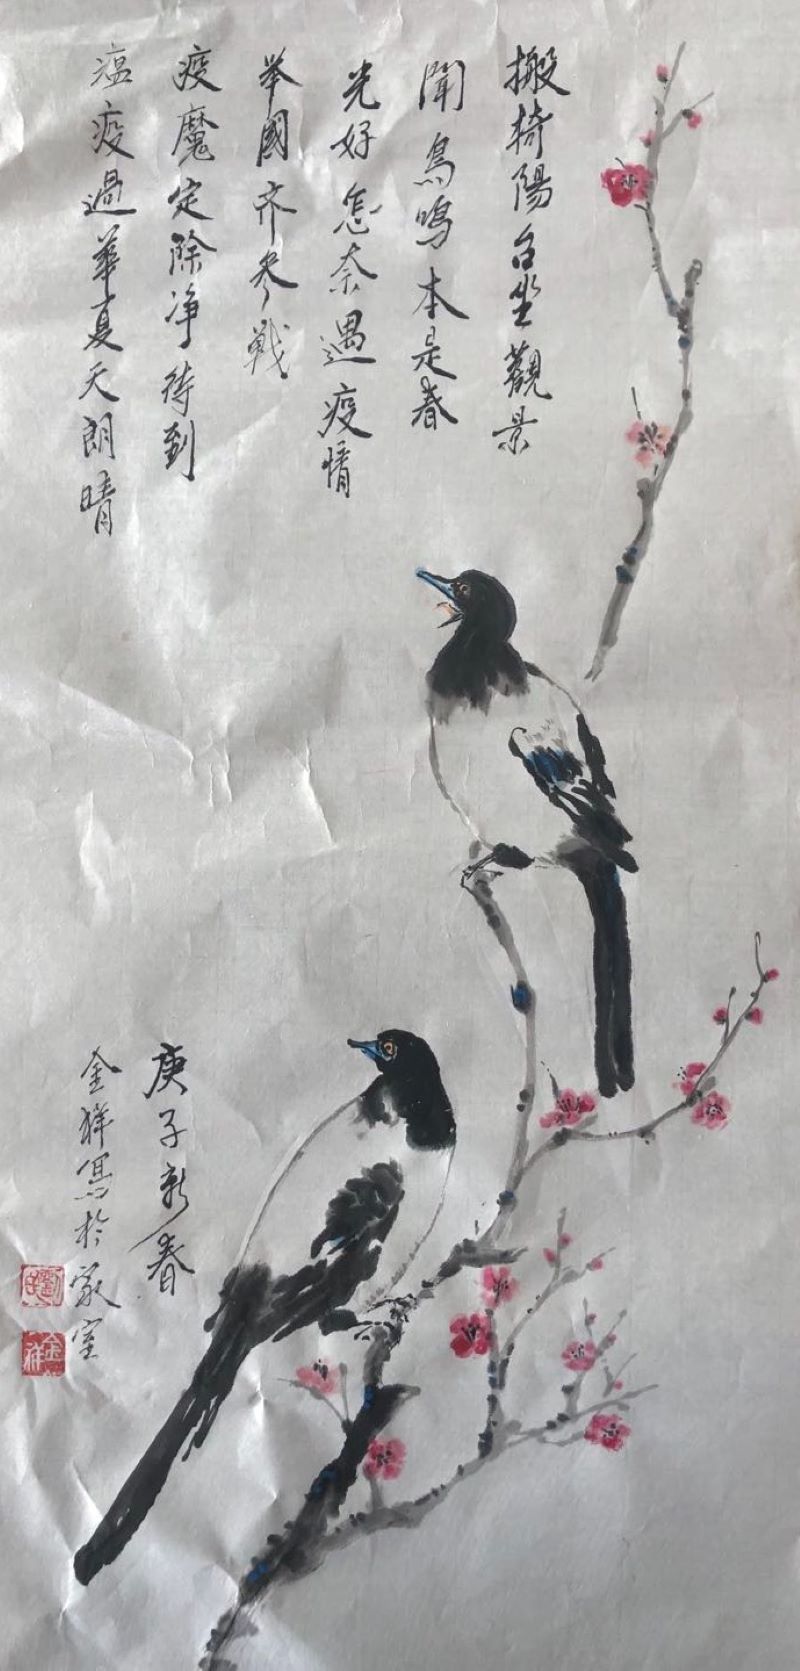 搬椅陽台坐觀景
聞鳥鳴本是春
光好怎奈遇疫情
举國齐参戰
疫魔定除净待到
瘟疫過華夏天朗晴
庚子新春
金祥寫於家室
金祥